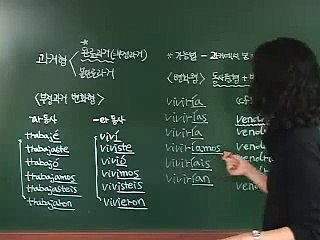 과거형
완료과거(=부정과거)
불완료과거
<부정과거 변화형>
-ar 동사
trabajé
trabajaste
trabajó
trabajamos
trabajasteis
trabajaron
-er 동사
viví
viviste
vivió
vivimos
vivisteis
vivieron
* 가능법 - 과거에서
<변화형> 동사원형 +
viviría
vivirías
viviría
viviríamos
viviríais
vivirían
vend
vend
vend
vend
vendr
vend